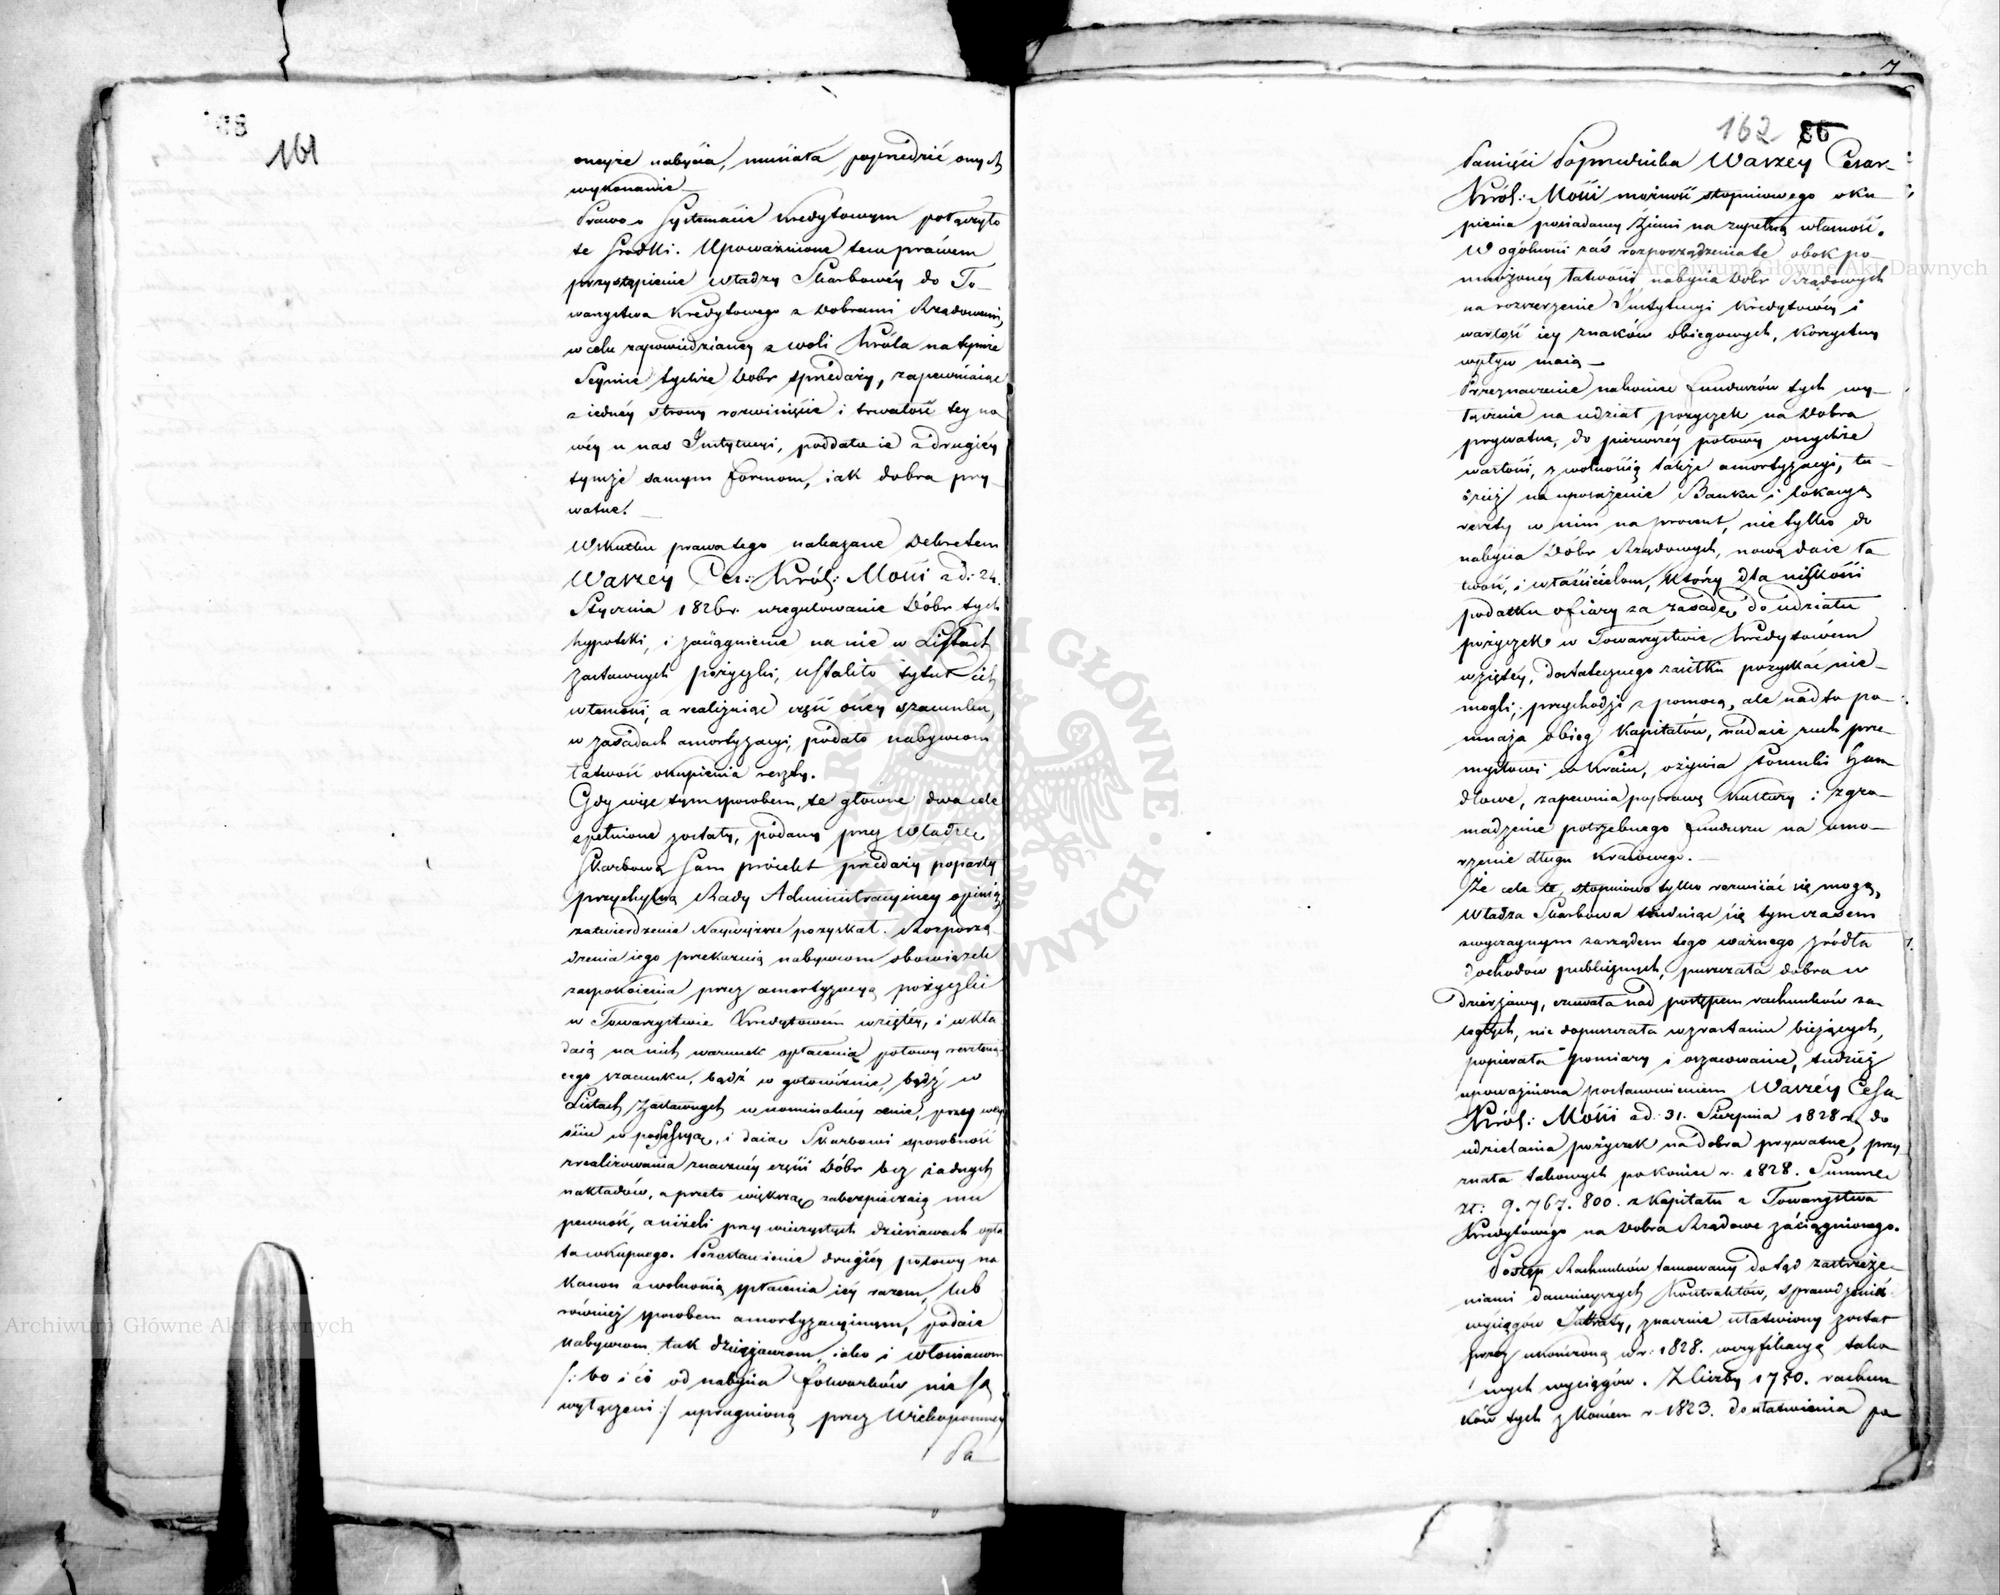 161
oneyże nabycia, musiała poprzedzić onych
wykonanie.
Prawo o Systemacie Kredytowym połączyło
te środki. Upoważnione tem prawem
przystąpienie Władzy Skarbowéy do To-
warzystwa Kredytowego z Dobrami Rządowemi,
w celu zapowiedzianey z woli Króla na tymże
Seymie tychże Dobr sprzedaży, zapewniaiąc
z iednéy strony rozwinięcie i trwałość tey no
wéy u nas Instytucyi, poddało ie z drugiéy
tymże samym formom, iak dobra pry-
watne.
Wskutku prawa tego nakazane Dekretem
Waszéy Ces: Król: Mości z d: 24.
Stycznia 1826 r. uregulowanie Dóbr tych
hypoteki, i zaciągnienie na nie w Listach
zastawnych pożyczki, ustaliło tytuł ich
własności, a realizuiąc część onéy szacunku,
w zasadach amortyzacyi, podało nabywcom
łatwość okupienia reszty.
Gdy więc tym sposobem, te główne dwa cele
spełnione zostały, podany przez Władzę
Skarbową sam proiekt przedaży poparty
przychylną Rady Administracyiney opinią
zatwierdzenie Naywyższe pozyskał. Rozporzą-
dzenia iego przekazuią nabywcom obowiązek
zaspokoienia przez amortyzacyą pożyczki
w Towarzystwie Kredytowém wziętéy, i wkła
daią na nich warunek opłacenia połowy resztuią-
cego szacunku, bądź w gotowiźnie, bądź w
Listach Zastawnych w nominalnéy cenie, przy wey
ściu w possessyą, i daiąc Skarbowi sposobność
zrealizowania znacznéy części Dóbr bez żadnych
nakładów, a przeto większą zabezpieczaią mu
pewność, aniżeli przy wieczystych dzierżawach opła
ta wkupnego. Pozostawienie drugiéy połowy na
Kanon z wolnością spłacenia iéy razem, lub
również sposobem amortyzacyinym, podaie
nabywcom, tak dzierżawcom, iako i włościanom
/: bo i ci od nabycia folwarków nie są
wyłączeni :/ upragnioną przez Wiekopomney
Pa
162 86
Pamięci Poprzednika Waszéy Cesar-
Król: Mości możność stopniowego oku-
pienia posiadaney ziemi na zupełną własność.
W ogólności zaś rozporządzenia te obok po-
mnożoney łatwości nabycia Dobr Rządowych
na rozszerzenie Instytucyi Kredytowéy i
wartość iey znaków obiegowych, korzystny
wpływ maią.
Przeznaczenie nakoniec funduszów tych wy-
łącznie na udział pożyczek na Dobra
prywatne, do pierwszéy połowy onychże
wartości, z wolnością także amortyzacyi, tu-
dzież na uposażenie Banku i lokacyą
reszty w nim na procent, nietylko do
nabycia Dóbr Rządowych, nową daie ła
twość, i właścicielom, którzy dla niskości
podatku ofiary za zasadę do udziału
pożyczek w Towarzystwie Kredytowém
wziętéy, dostatecznego zasiłku pozyskać nie-
mogli, przychodzi z pomocą, ale nadto po-
mnaża obieg Kapitałów, nadaie ruch prze-
mysłowi w Kraiu, ożywia stosunki han
dlowe, zapewnia poprawę Kultury i zgro-
madzenie potrzebnego funduszu na umo-
rzenie długu Kraiowego.
Że cele te, stopniowo tylko rozwiiać się mogą,
Władza Skarbowa trudniąc się tymczasem
zwyczaynym zarządem tego ważnego źródła
dochodów publicznych, puszczała dobra w
dzierżawy, czuwała nad postępem rachunków za-
ległych, nie dopuszczała wzrastaniu bieżących,
popierała pomiary i oszacowanie, tudzież
upoważniona postanowieniem Waszéy Cesa-
Król: Mości z d: 31. Sierpnia 1828 r. do
udzielania pożyczek na dobra prywatne, przy
znała takowych po koniec r. 1828. Summę
zł: 9.767.800. z Kapitału z Towarzystwa
Kredytowego na Dobra Rządowe zaciągnionego.
Postęp Rachunków tamowany dotąd zastrzeże-
niami dawnieyszych Kontraktów, sprawdzenie
wyciągów Intraty, znacznie ułatwiony został
przez ukończoną w r: 1828. weryfikacyą tako-
wych wyciągów. Z liczby 1750. rachun
ków tych z końcem r. 1823. do ułatwienia po
Archiwum Główne Akt Dawnych
Archiwum Główne Akt Dawnych